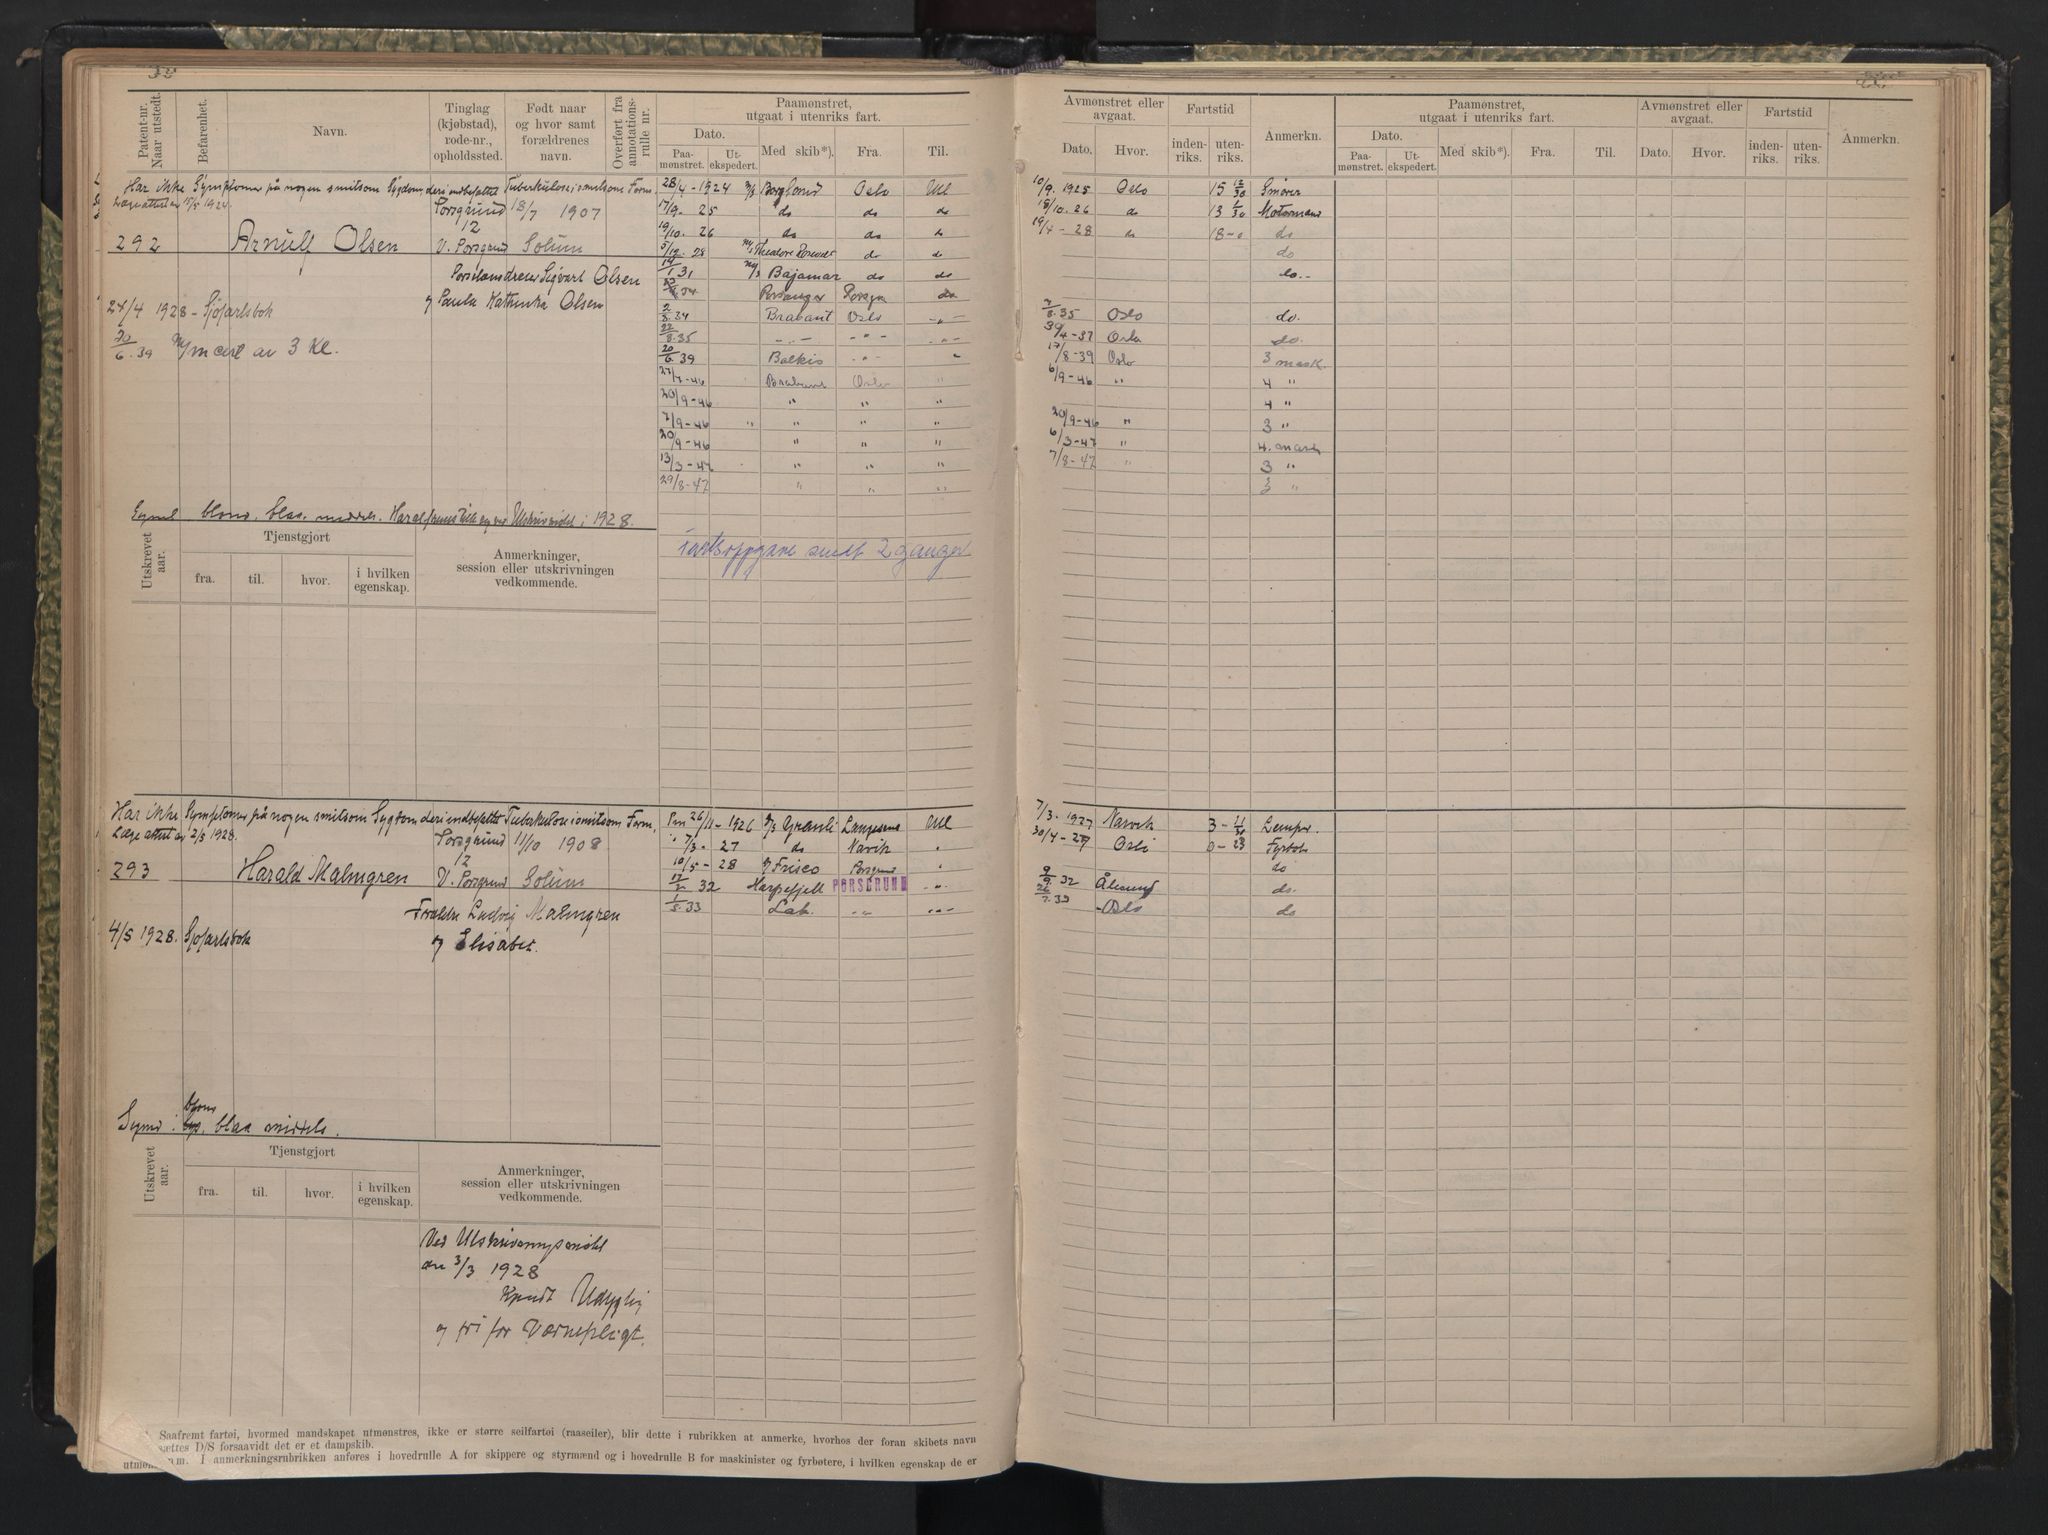 Patent-nr. Naar utstedt.
Befarenhet.
Navn.
Tinglag (kjøbstad), rode-nr., opholdssted.
Født naar og hvor samt forældrenes navn.
Overført fra annotations-rulle nr.
Paamønstret, utgaat i utenriks fart.
Dato.
Paa-mønstret.
Ut-ekspedert.
Med skib*).
Fra.
Til.
Avmønstret eller avgaat.
Dato.
Hvor.
Fartstid
inden-riks.
uten-riks.
Anmerkn.
Paamønstret, utgaat i utenriks fart.
Dato.
Paa-mønstret.
Ut-ekspedert.
Med skib*).
Fra.
Til.
Avmønstret eller avgaat.
Dato.
Hvor.
Fartstid
inden-riks.
uten-riks.
Anmerkn.
Har ikke Symptomer på nogen smitsom Sygdom deri indbefattet Tuberkulose i smitsom Form.
Lægeattest av 15/5 1924.
Porsgrund 18/7 1907
12
292 Arnulf Olsen V. Porsgrund Solum
Porselensdreier Sigvart Olsen
og Paula Kathinka Olsen
24/4 1928 - Sjøfartsbok
20/6.39 M/m cert av 3 Kl.
28/4 - 1924 Borgland Oslo Utl 10/9. 1925 Oslo 15 12/30 Smører
17/9 - 25 do do do 18/10. 26 do 13 1/30 Motormand
19/10. 26 do do do 19/4 - 28 do 18-0 do
5/12. 28 Theodore Roosevelt do do do
19/1 31 Bajamar do do do.-
Porsanger Porsgr do
2/8.34 Brabant Oslo -„- 7/8.35 Oslo do.
22/8.35 -„- -„- 4-37 Oslo do.
20/6.39 Balkis -„- „ 17/8-39 Oslo 3 mask.
27/7-46 Brabant Oslo „ 6/9-46 „ 4 „
20/9-46 „ „ „ 4 „
7/9-46 „ „ „ „ 20/9-46 „ 3 „
20/9-46 „ „ „ 6/3-47 „ 4. mask
13/3-47 „ „ „ 7/8-47 „ 3 „
29/8-47 „ „ „ 3 „
Symd blond. blaa. middels. Har ikke Utskrivmødet i 1928.
Fartsoppgave sendt 2 ganger
Utskrevet aar.
Tjenstgjort
fra.
til.
hvor.
i hvilken egenskap.
Anmerkninger, session eller utskrivningen vedkommende.
Har ikke Symptomer på nogen smitsom Sygdom deri indbefattet Tuberkulose i smitsom Form.
Læge attest av 2/5 1928.
Porsgrund 11/10 1908
12
293 Harald Malmgren V. Porsgrund Solum
Foreldre Ludvig Malmgren
og Elisabet.
4/5 1928. Sjøfartsbok
26/11 - 1926 Granli Langesund Utl 7/3 - 1927 Narvik 3 - 11/30 Lempr.
7/3 - 27 do Narvik „ 30/4 - 27 Oslo 0 - 23 Fyrbøt
10/5 - 28 Frisco Porsgrund „ do
32 Harpefjell PORSGRUNN -„- 9/9.32 Ålesund do.
1/5.33 Lab. -„- -„- 33 Oslo do
Symd. blond blaa middels.
Utskrevet aar.
Tjenstgjort
fra.
til.
hvor.
i hvilken egenskap.
Anmerkninger, session eller utskrivningen vedkommende.
Ved Utskrivningsmødet
den 3/3 1928
kjendt Udygtig
og fri for Værnepligt.
Saafremt fartøi, hvormed mandskapet utmønstres, ikke er større seilfartøi (raaseiler), blir dette i rubrikken at anmerke, hvorhos der foran skibets navn
sættes D/S forsaavidt det er et dampskib.
I anmerkningsrubrikken anføres i hovedrulle A for skippere og styrmænd og i hovedrulle B for maskinister og fyrbøtere, i hvilken egenskap de er